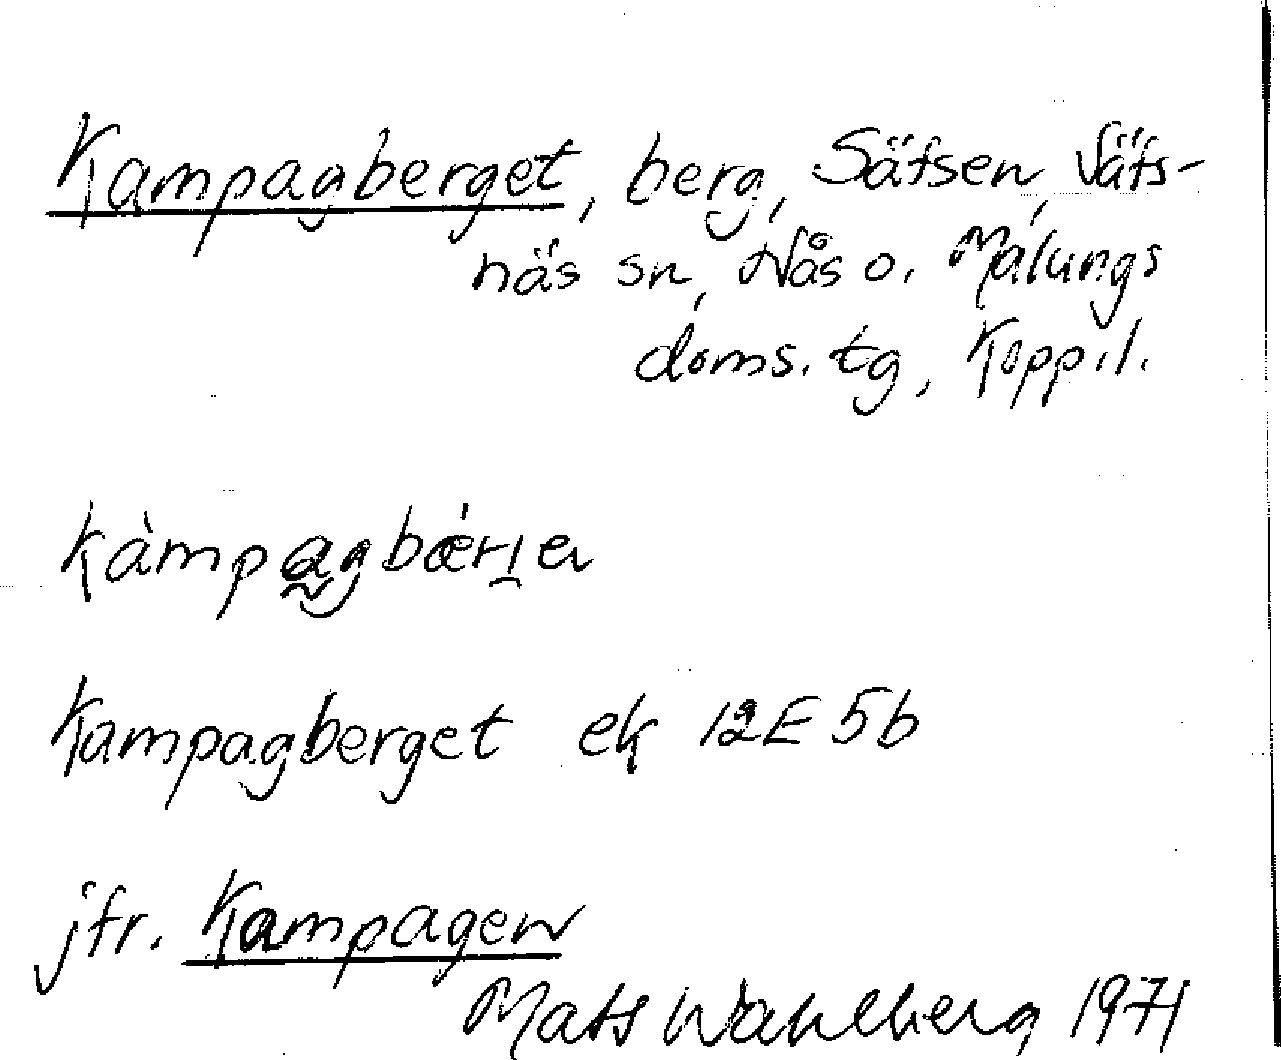 Kampagberget, berg, Sätsen, Säfs-
näs sn, Nås o. Malungs
doms. tg, Kopp. l.
kàmpagbǽrıen
Kampagberget ek 12E 5b
jfr. Kampagen
Mats Wahlberg 1971